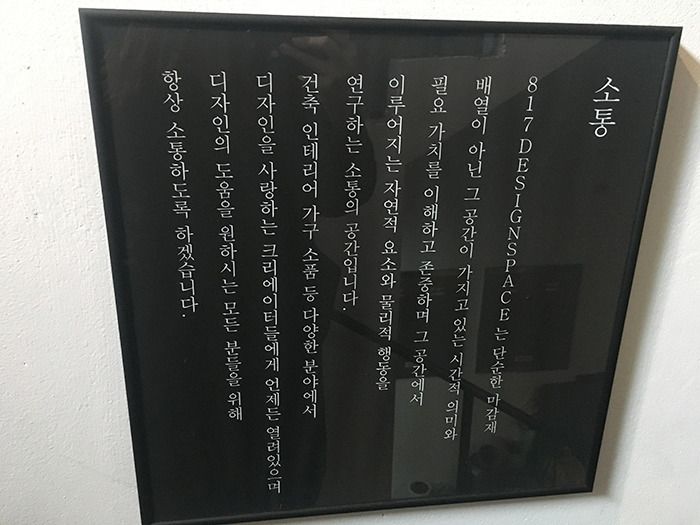 소통
817DESIGNSPACE는 단순한 마감재
배열이 아닌 그 공간이 가지고 있는 시간적 의미와
필요 가치를 이해하고 존중하며 그 공간에서
이루어지는 자연적 요소와 물리적 행동을
연구하는 소통의 공간입니다.
건축 인테리어 가구 소품 등 다양한 분야에서
디자인을 사랑하는 크리에이터들에게 언제든 열려있으며
디자인의 도움을 원하시는 모든 분들을 위해
항상 소통하도록 하겠습니다.